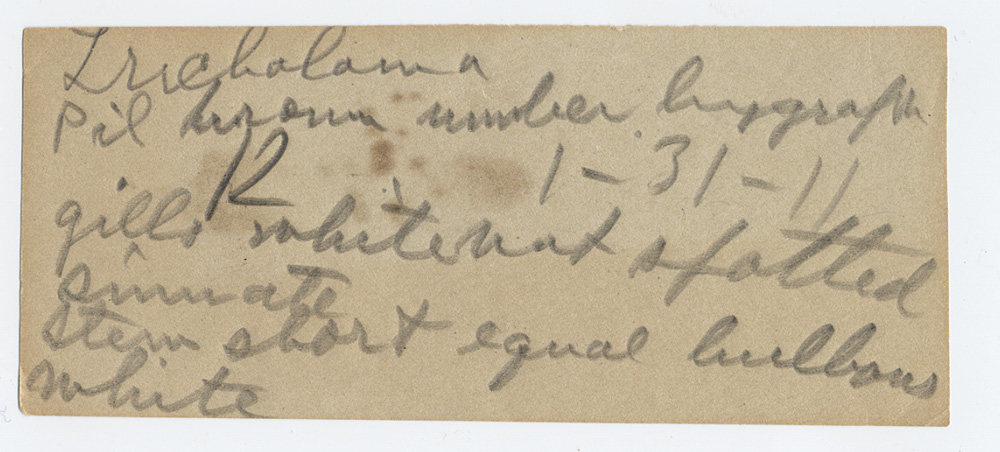 Tricholoma
pil brown umber hygroph
R 1-31-11
gills white not spotted
sinuate
stem short equal bulbous
white